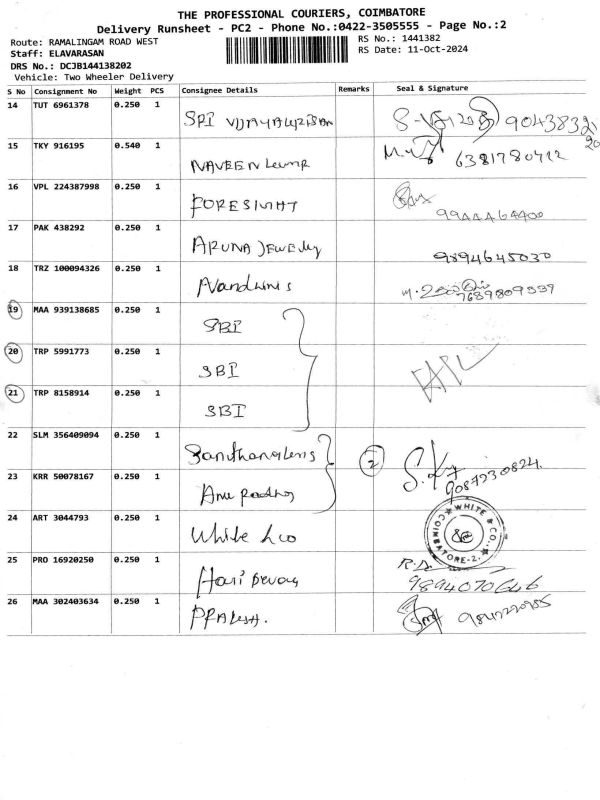 THE PROFESSIONAL COURIERS, COIMBATORE
Delivery Runsheet - PC2 - Phone No.:0422-3505555 - Page No.:2
Route: RAMALINGAM ROAD WEST RS No.: 1441382
Staff: ELAVARASAN RS Date: 11-Oct-2024
DRS No.: DCJB144138202
Vehicle: Two Wheeler Delivery
S No Consignment No Weight PCS Consignee Details Remarks Seal & Signature
14 TUT 6961378 0.250 1 SRI
15 TKY 916195 0.540 1 NAVEEN Kumar 6381780412
16 VPL 224387998 0.250 1 FORESIGHT 9944464400
17 PAK 438292 0.250 1 ARUNA Jewelly 9894645030
18 TRZ 100094326 0.250 1 7639809539
19 MAA 939138685 0.250 1 SBI
20 TRP 5991773 0.250 1 SBI
21 TRP 8158914 0.250 1 SBI
22 SLM 356409094 0.250 1 2
23 KRR 50078167 0.250 1 9087230824.
24 ART 3044793 0.250 1 White & co WHITE & CO., COIMBATORE-2.
25 PRO 16920250 0.250 1 Hari 9894070646
26 MAA 302403634 0.250 1